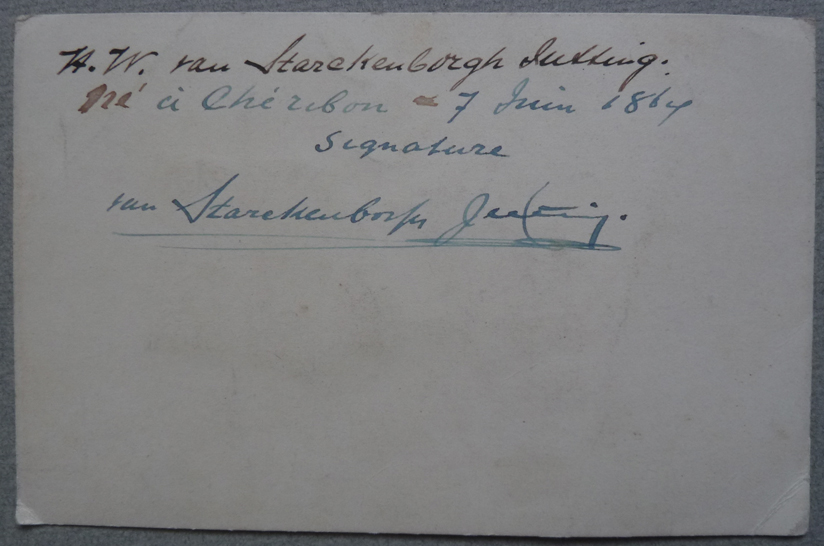 H. W. van Starckenborgh Jutting.
Né à Chéribon - 7 Juin 1864
Signature
van Starckenborgh Jutting.